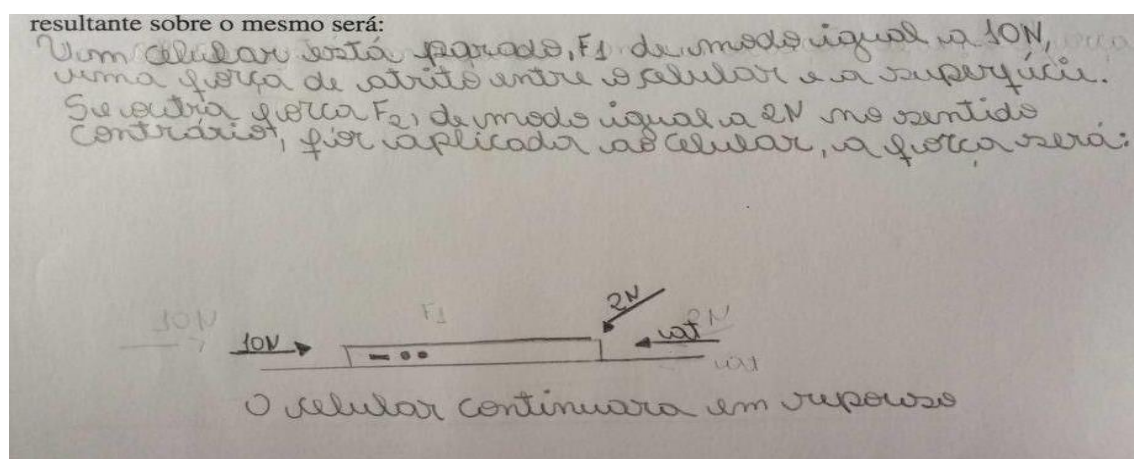 resultante sobre o mesmo será:
Um celular está parado, F1 de modo igual a 10N,
uma força de atrito entre o celular e a superfície.
Se outra força F2, de modo igual a 2N no sentido
contrário, for aplicada ao celular, a força será:
2N
10N F1 2N
10N at
at
O celular continuara em repouso